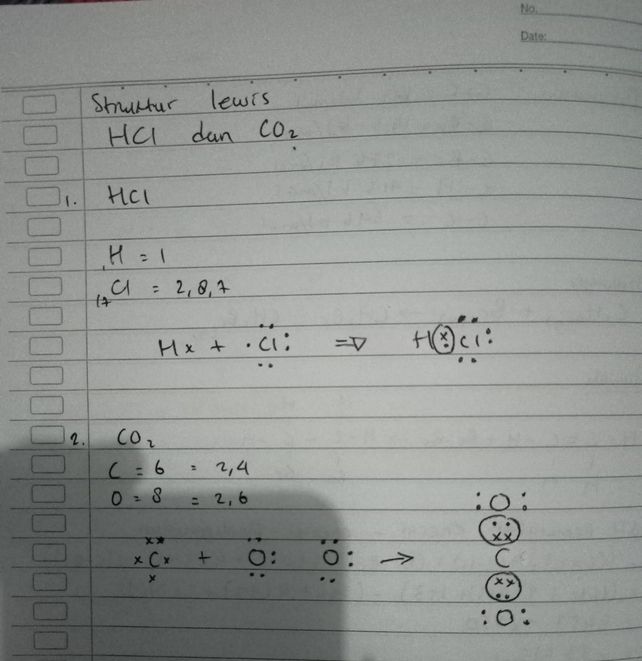 No.
Date:
Struktur lewis
HCl dan CO₂
1. HCl
₁H = 1
₁₇Cl = 2, 8, 7
Hx + ·Cl: ⇒ H(x·)Cl:
2. CO₂
C = 6 = 2,4
O = 8 = 2,6
:O:
xCx + O: O: → C
:O: